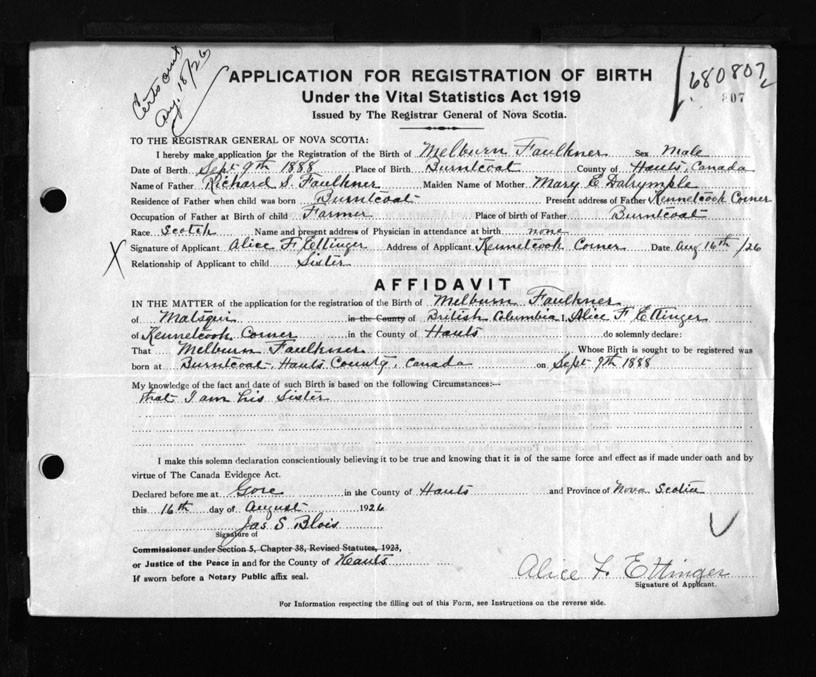 Certs out
Aug. 18/26
680807
807
APPLICATION FOR REGISTRATION OF BIRTH
Under the Vital Statistics Act 1919
Issued by The Registrar General of Nova Scotia.
TO THE REGISTRAR GENERAL OF NOVA SCOTIA:
I hereby make application for the Registration of the Birth of Melburn Faulkner Sex Male
Date of Birth Sept 9th 1888 Place of Birth Burntcoat County of Hants, Canada
Name of Father Richard S. Faulkner Maiden Name of Mother Mary E Dalrymple
Residence of Father when child was born Burntcoat Present address of Father Kennetcook Corner
Occupation of Father at Birth of child Farmer Place of birth of Father Burntcoat
Race Scotch Name and present address of Physician in attendance at birth none
X Signature of Applicant Alice F. Ettinger Address of Applicant Kennetcook Corner Date Aug 16th /26
Relationship of Applicant to child Sister
AFFIDAVIT
IN THE MATTER of the application for the registration of the Birth of Melburn Faulkner
of Matsqui in the County of British Columbia I Alice F. Ettinger
of Kennetcook Corner in the County of Hants do solemnly declare:
That Melburn Faulkner Whose Birth is sought to be registered was
born at Burntcoat, Hants County, Canada on Sept 9th 1888
My knowledge of the fact and date of such Birth is based on the following Circumstances:—
that I am his Sister
I make this solemn declaration conscientiously believing it to be true and knowing that it is of the same force and effect as if made under oath and by
virtue of The Canada Evidence Act.
Declared before me at Gore in the County of Hants and Province of Nova Scotia
this 16th day of August 1926
Jas S. Blois
Signature of
Commissioner under Section 5, Chapter 38, Revised Statutes, 1923,
or Justice of the Peace in and for the County of Hants
If sworn before a Notary Public affix seal.
Alice F. Ettinger
Signature of Applicant.
For Information respecting the filling out of this Form, see Instructions on the reverse side.